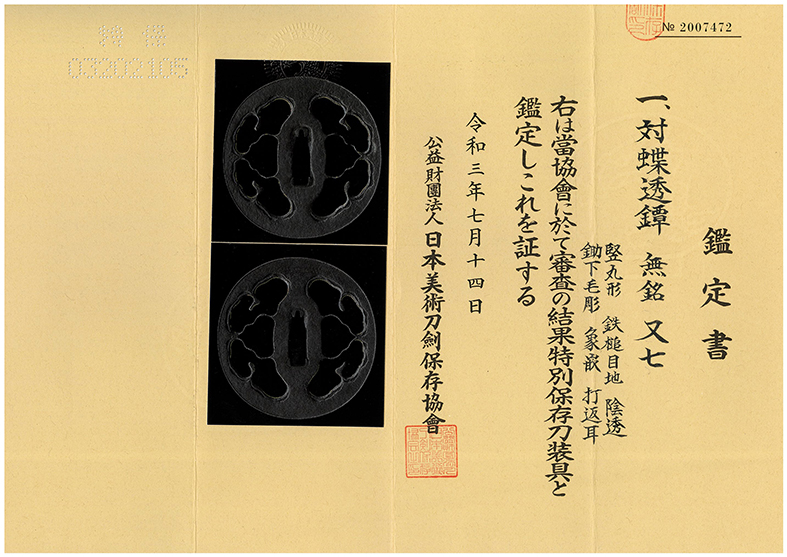 № 2007472
鑑定書
一、対蝶透鐔 無銘 又七
竪丸形 鉄槌目地 陰透
鋤下毛彫 象嵌 打返耳
右は當協會に於て審査の結果特別保存刀装具と
鑑定しこれを証する
令和三年七月十四日
公益財團法人 日本美術刀劍保存協會
特保
03202105